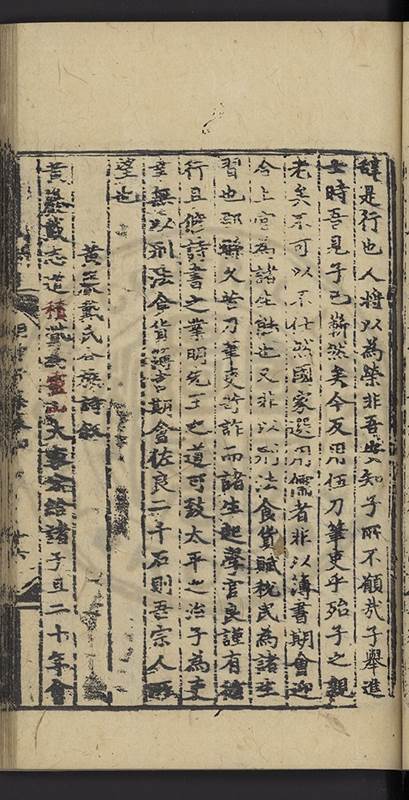 辭是行也人將以為榮非吾與知子所不願哉子舉進
士時吾見子已嶄然矣今反用伍刀筆吏乎殆子之親
老矣不可以不仕然國家選用儒者非以簿書期會迎
合上官為諸生也又非以刑法食貨賦稅民為諸生
習也郡縣久苦刀筆吏苛詐而諸生起學官良謹有
行且修詩書之業明先王之道可致太平之治子為吏
幸無以刑法食貨簿書期會佐良二千石則吾宗人所
望也
黃巖戴氏合族詩敘
黃巖戴志道積貲為靈山大事家給諸子且二十年會